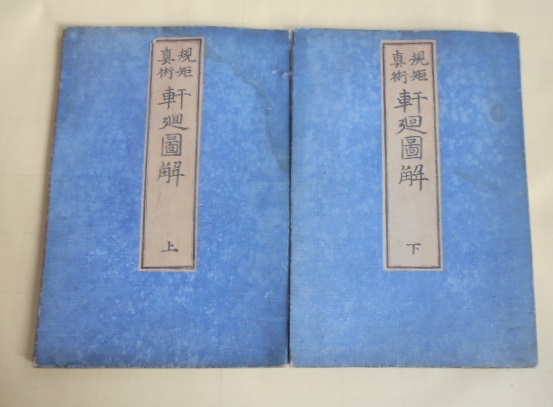 規矩
真術
軒廻圖解
上
規矩
真術
軒廻圖解
下